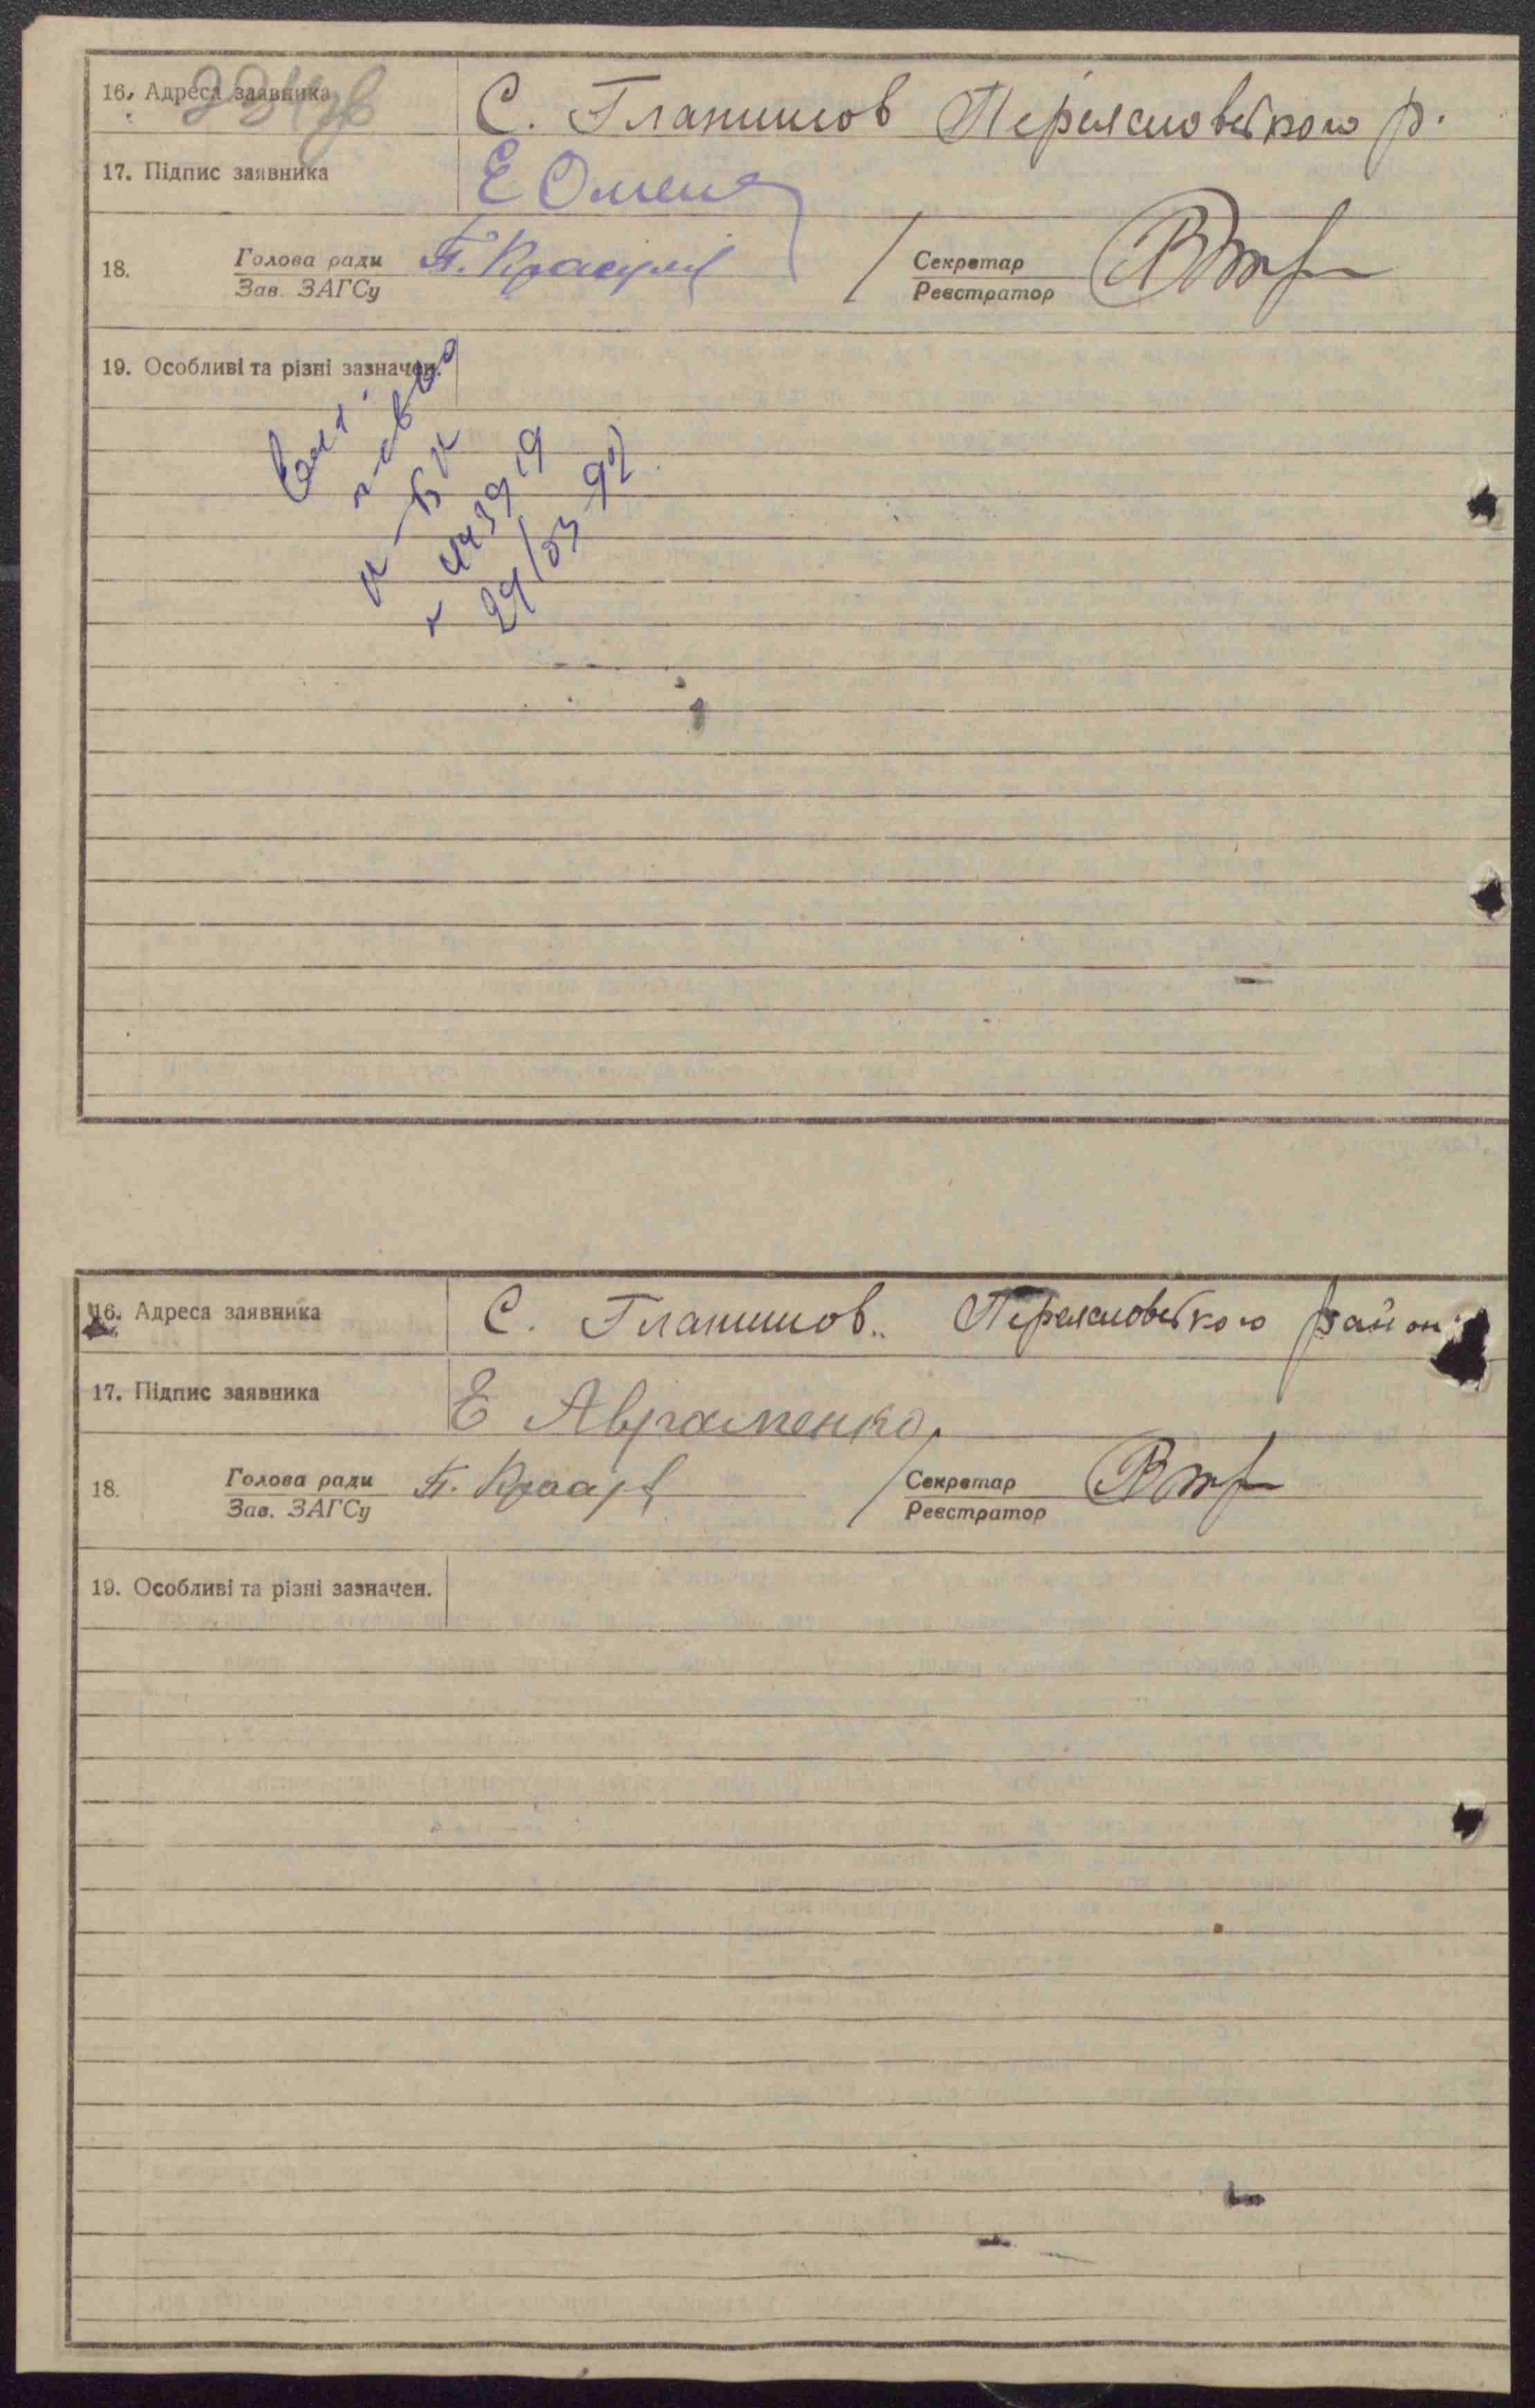 16. Адреса заявника С. Гланишов Переяславського р.
17. Підпис заявника Е Омен
18. Голова ради П. Красул Секретар
Зав. ЗАГСу Реєстратор
19. Особливі та різні зазначен.
443919
29/03 92
16. Адреса заявника С. Гланишов. Переяславського район
17. Підпис заявника Е Авраменко
18. Голова ради П. Секретар
Зав. ЗАГСу Реєстратор
19. Особливі та різні зазначен.